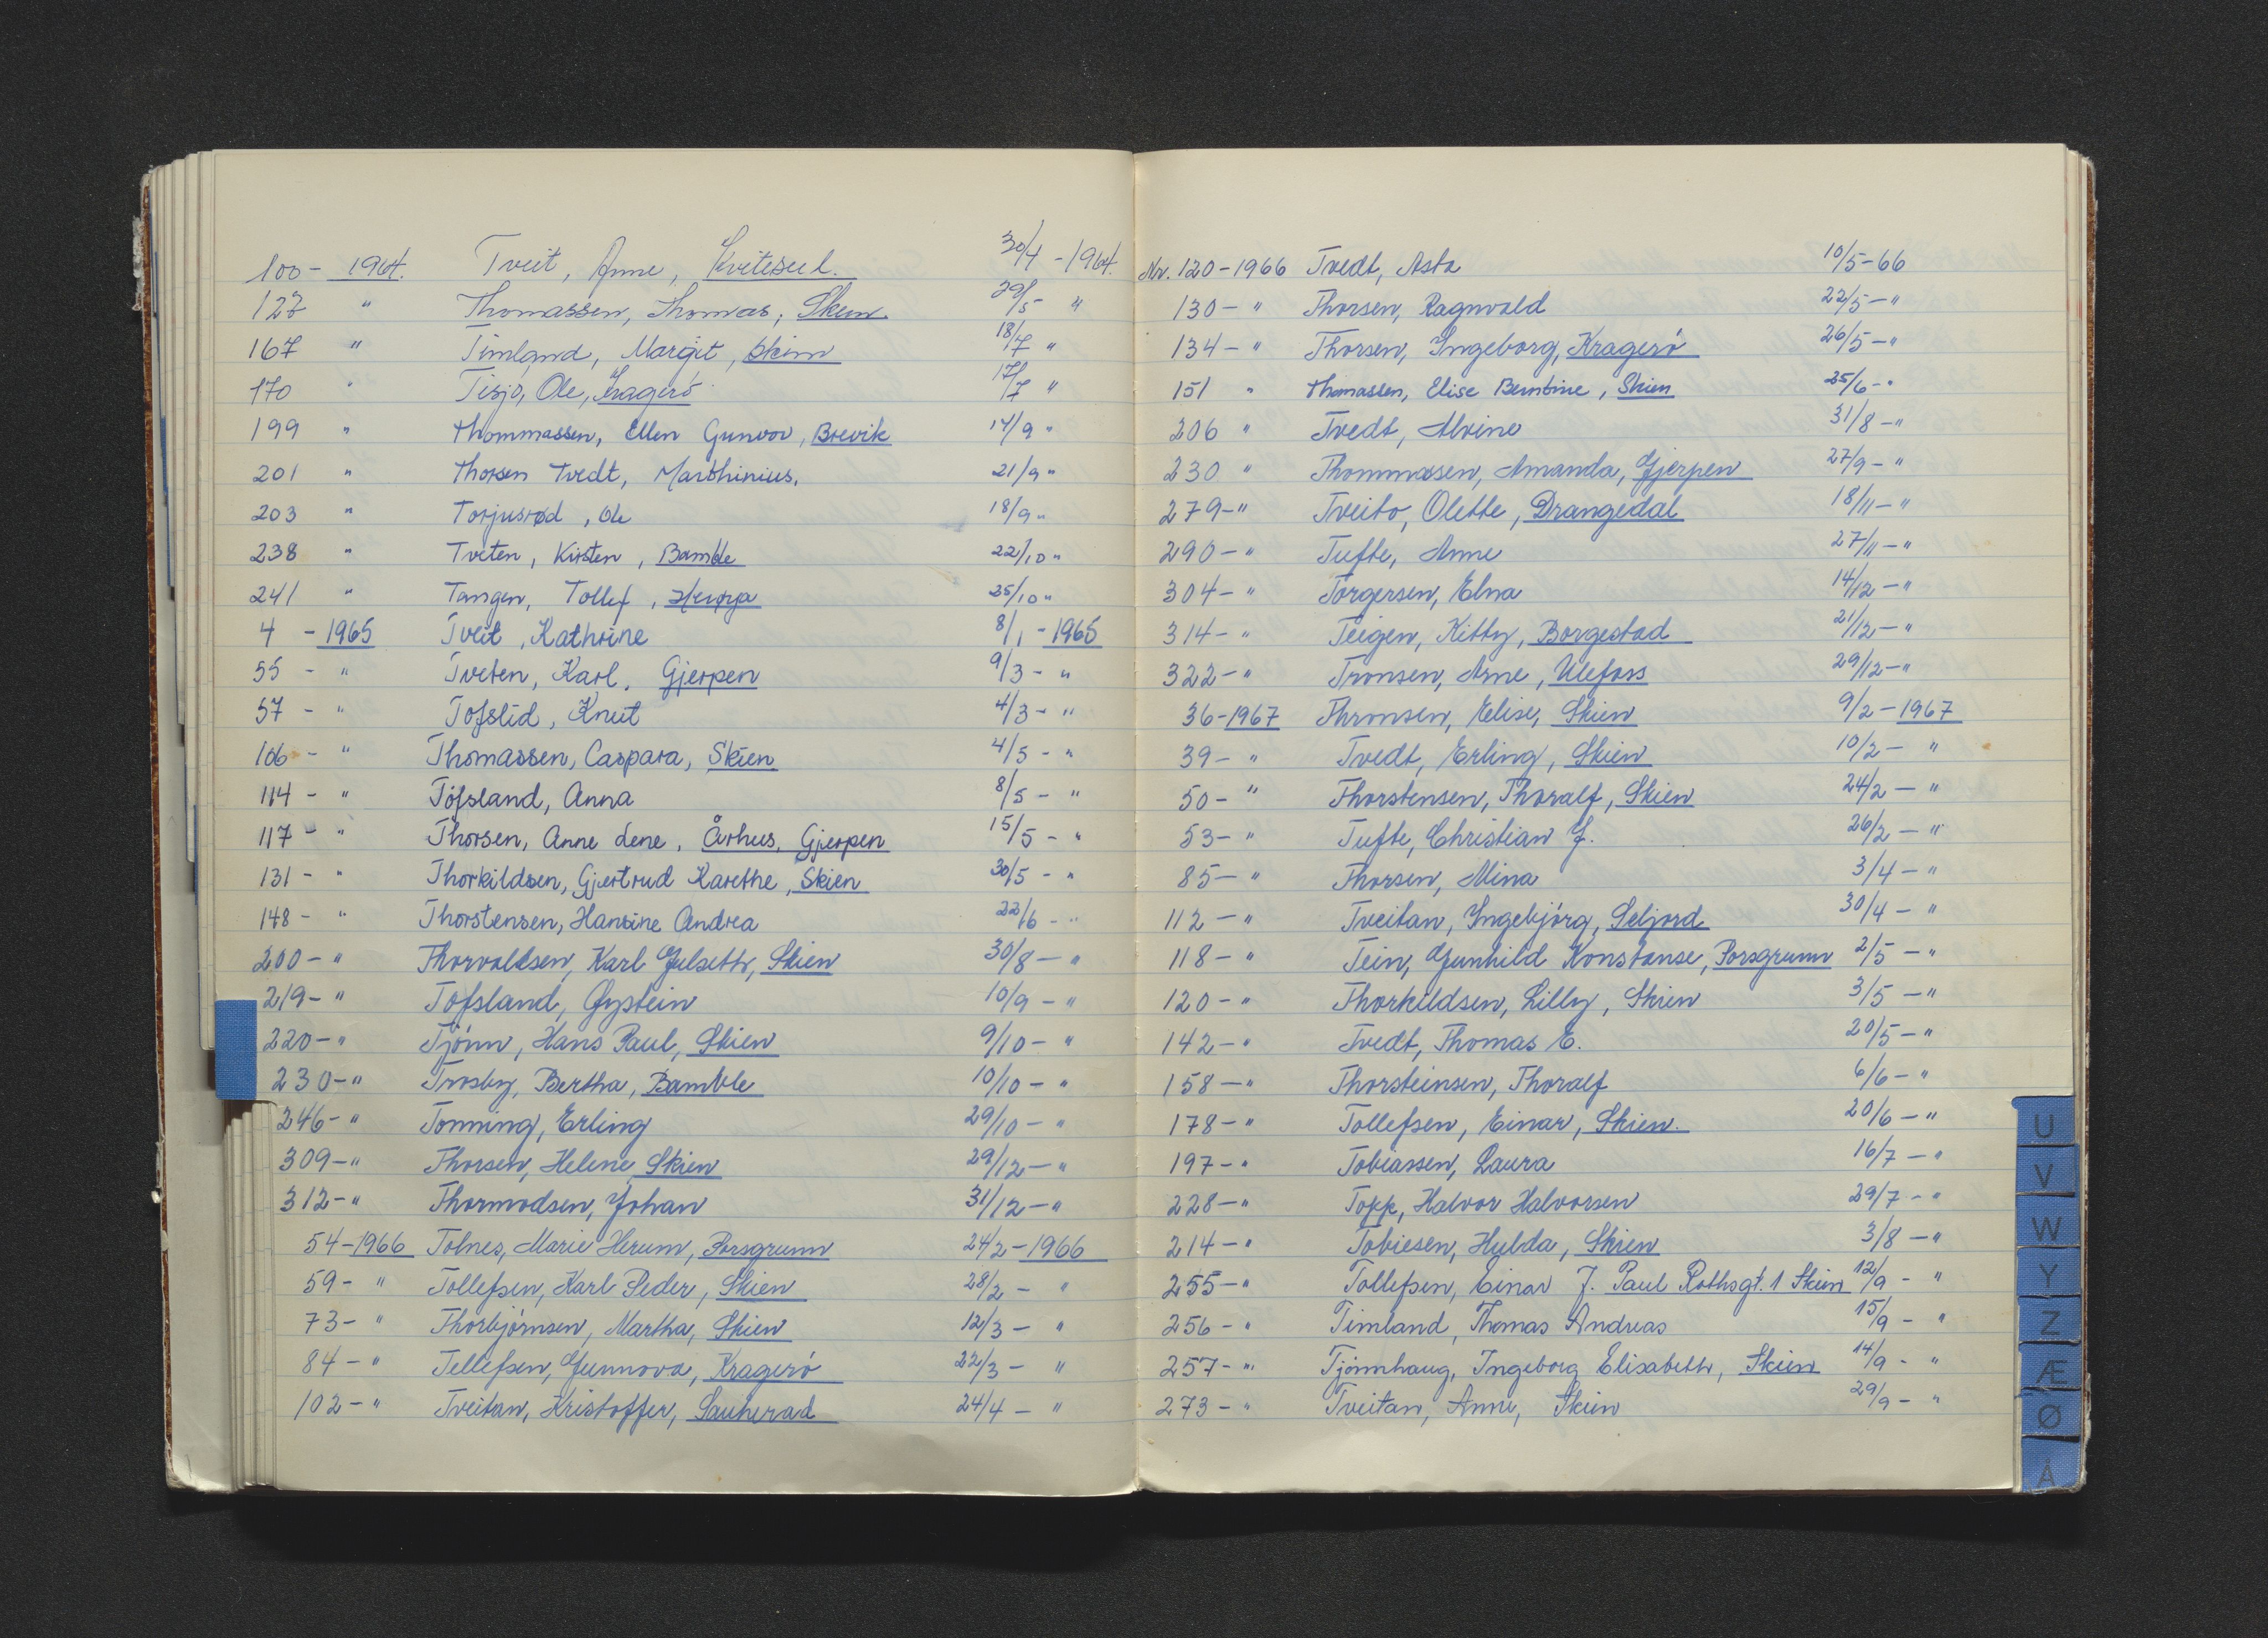 100 - 1964. Tveit, Anne, Kviteseid. 30/4 - 1964.
127 " Thomassen, Thomas, Skien. 29/5 - "
167 " Timland, Margit, Skien 18/7 "
170 " Tisjø, Ole, Kragerø 17/7 "
199 " Thommassen, Ellen Gunvor, Brevik 14/9 "
201 " Thorsen Tvedt, Marthinius, 21/9 "
203 " Torjusrød, Ole 18/9 "
238 " Tveten, Kirsten, Bamble 22/10 "
241 " Tangen, Tollef, Herøya 25/10 "
4 - 1965 Tveit, Kathrine 8/1 - 1965
55 - " Tveten, Karl, Gjerpen 9/3 - "
57 - " Tofslid, Knut 4/3 - "
106 - " Thomassen, Caspara, Skien 4/5 - "
114 - " Töfsland, Anna 8/5 - "
117 - " Thorsen, Anne Lene, Århus, Gjerpen 15/5 - "
131 - " Thorkildsen, Gjertrud Karethe, Skien 30/5 - "
148 - " Thorstensen, Hansine Andrea 22/6 - "
200 - " Thorvaldsen, Karl Julseth, Skien 30/8 - "
219 - " Tofsland, Øystein 10/9 - "
220 - " Tjönn, Hans Paul, Skien 9/10 - "
230 - " Trosby, Bertha, Bamble 10/10 - "
246 - " Tonning, Erling 29/10 - "
309 - " Thorsen, Helene, Skien 29/12 - "
312 - " Thormodsen, Johan 31/12 - "
54 - 1966 Tolnes, Marie Herum, Porsgrunn 24/2 - 1966
59 - " Tollefsen, Karl Peder, Skien 28/2 - "
73 - " Thorbjørnsen, Martha, Skien 12/3 - "
84 - " Tellefsen, Gunnova, Kragerø 22/3 - "
102 - " Tveitan, Kristoffer, Sauherad 24/4 - "
Nr. 120 - 1966 Tvedt, Asta 10/5 - 66
130 - " Thorsen, Ragnvald 22/5 - "
134 - " Thorsen, Ingeborg, Kragerø 26/5 - "
151 " Thomassen, Elise Berntine, Skien 25/6 - "
206 " Tvedt, Alvine 31/8 - "
230 " Thommasen, Amanda, Gjerpen 27/9 - "
279 - " Tveito, Olette, Drangedal 18/11 - "
290 - " Tufte, Anne 27/11 - "
304 - " Torgersen, Elna 14/12 - "
314 - " Teigen, Kitty, Borgestad 21/12 - "
322 - " Tronsen, Arne, Ulefoss 29/12 - "
36 - 1967 Thronsen, Elise, Skien 9/2 - 1967
39 - " Tvedt, Erling, Skien 10/2 - "
50 - " Thorstensen, Thoralf, Skien 24/2 - "
53 - " Tufte, Christian J. 26/2 - "
85 - " Thorsen, Mina 3/4 - "
112 - " Tveitan, Ingebjørg, Seljord 30/4 - "
118 - " Tein, Gunhild Konstanse, Porsgrunn 2/5 - "
120 - " Thorkildsen, Lilly, Skien 3/5 - "
142 - " Tvedt, Thomas E. 20/5 - "
158 - " Thorsteinsen, Thoralf 6/6 - "
178 - " Tollefsen, Einar, Skien. 20/6 - "
197 - " Tobiassen, Laura 16/7 - "
228 - " Topp, Halvor Halvorsen 29/7 - "
214 - " Tobiesen, Hulda, Skien 3/8 - "
255 - " Tollefsen, Einar J. Paul Rothsgt. 1 Skien 12/9 - "
256 - " Timland, Thomas Andreas 15/9 - "
257 - " Tjönnhaug, Ingeborg Elisabeth, Skien 14/9 - "
273 - " Tveitan, Anne, Skien 29/9 - "
U
V
W
Y
Z
Æ
Ø
Å